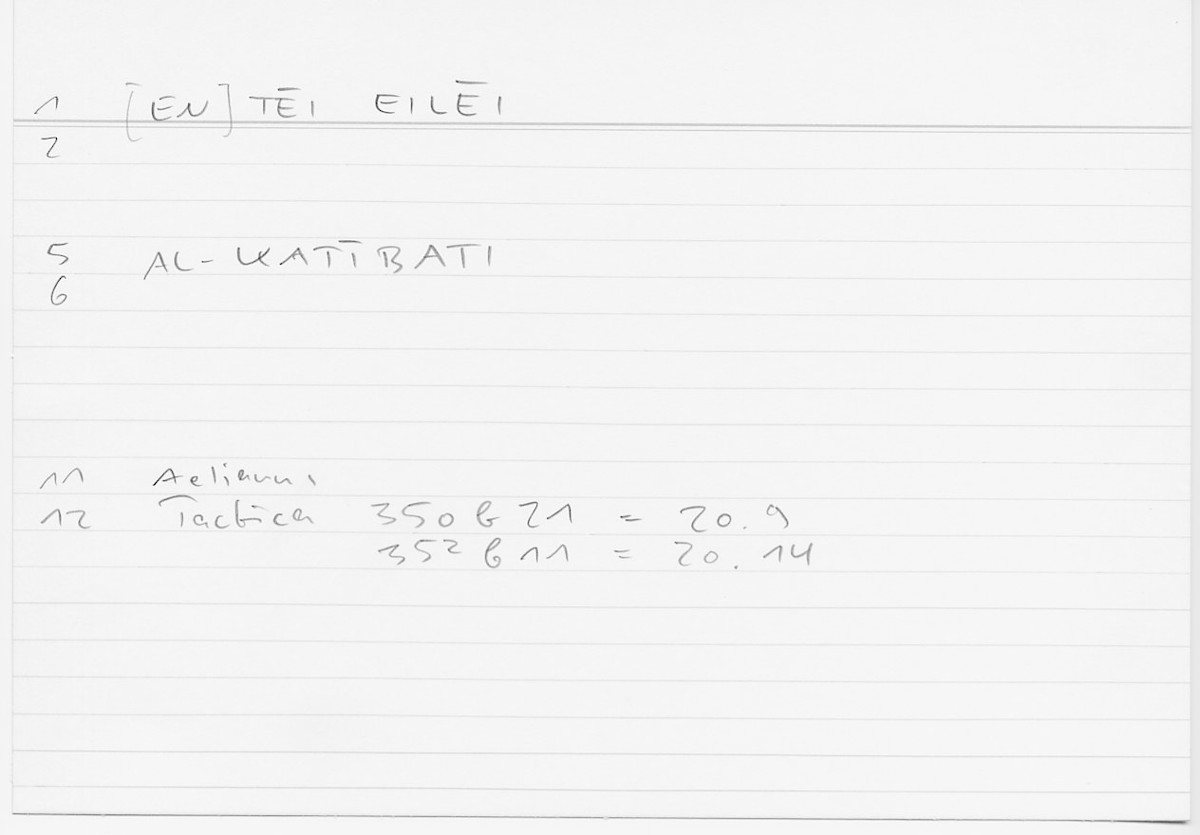 1 [EN] TĒI EILĒI
2
5 AL-KATĪBATI
6
11 Aelianus
12 Tactica 350 b 21 = 20.9
352 b 11 = 20.14